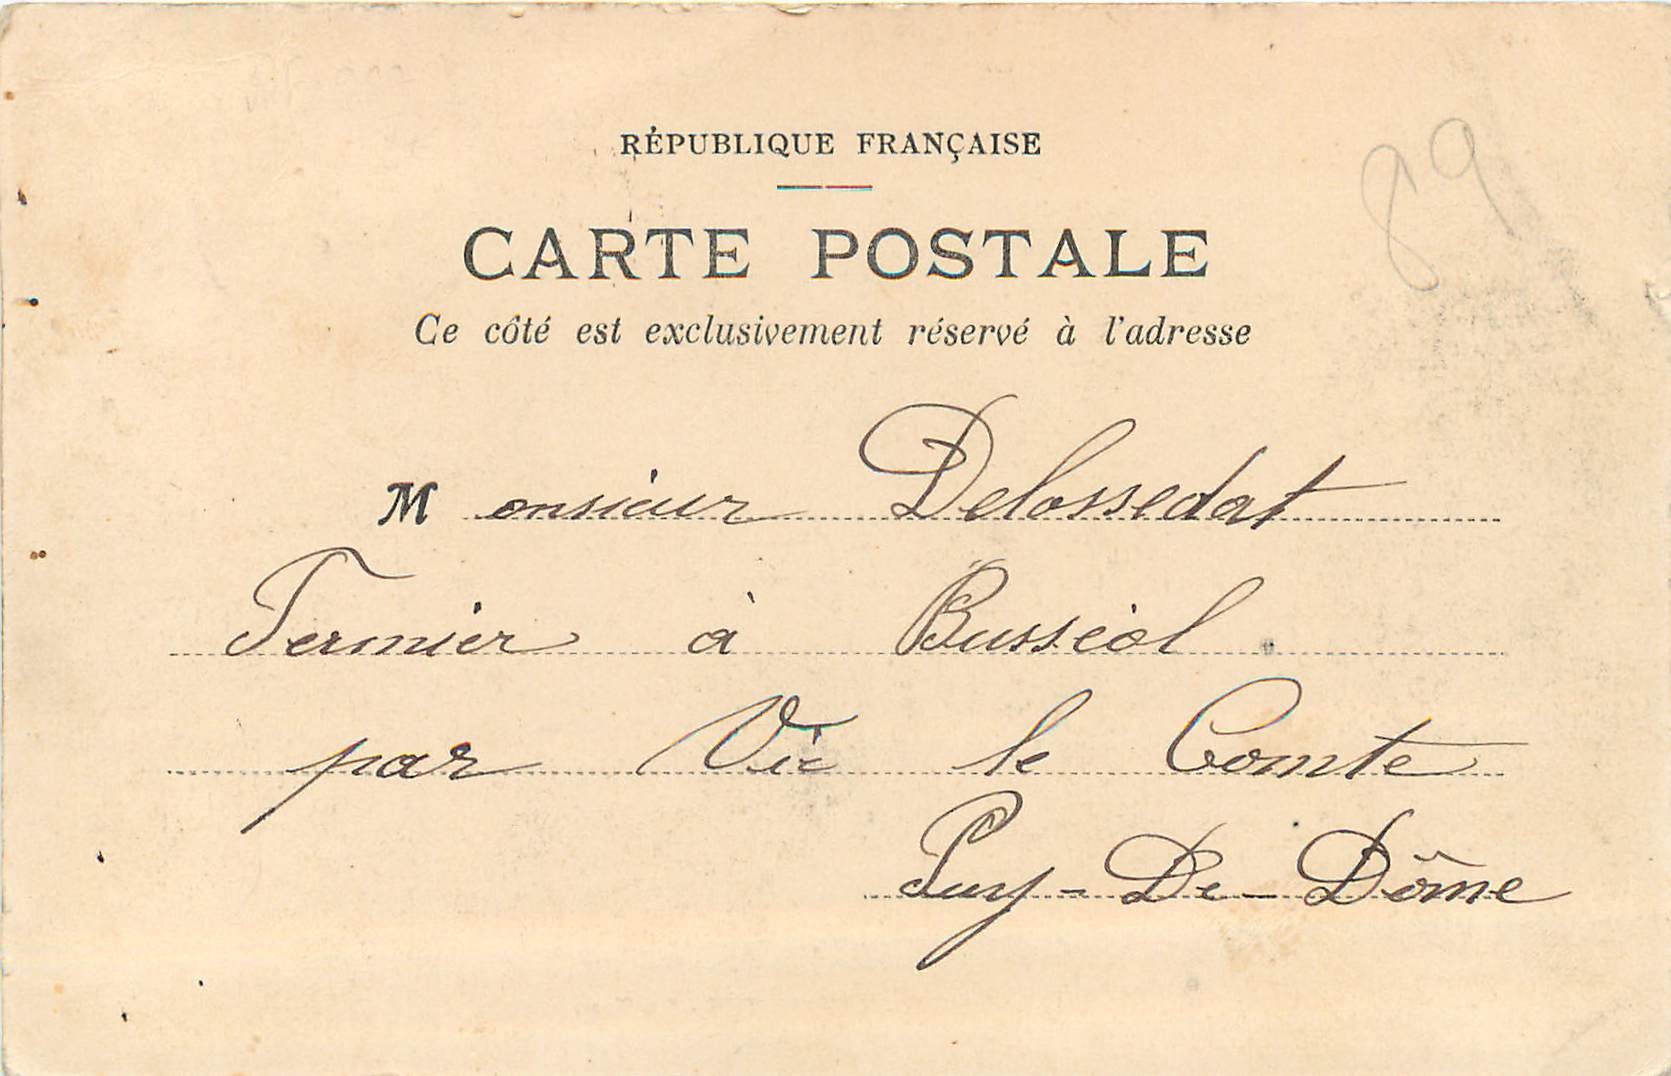 RÉPUBLIQUE FRANÇAISE
89
CARTE POSTALE
Ce côté est exclusivement réservé à l'adresse
Monsieur Delossedat
Fermier à Busséol
par Vic le Comte
Puy-De-Dôme